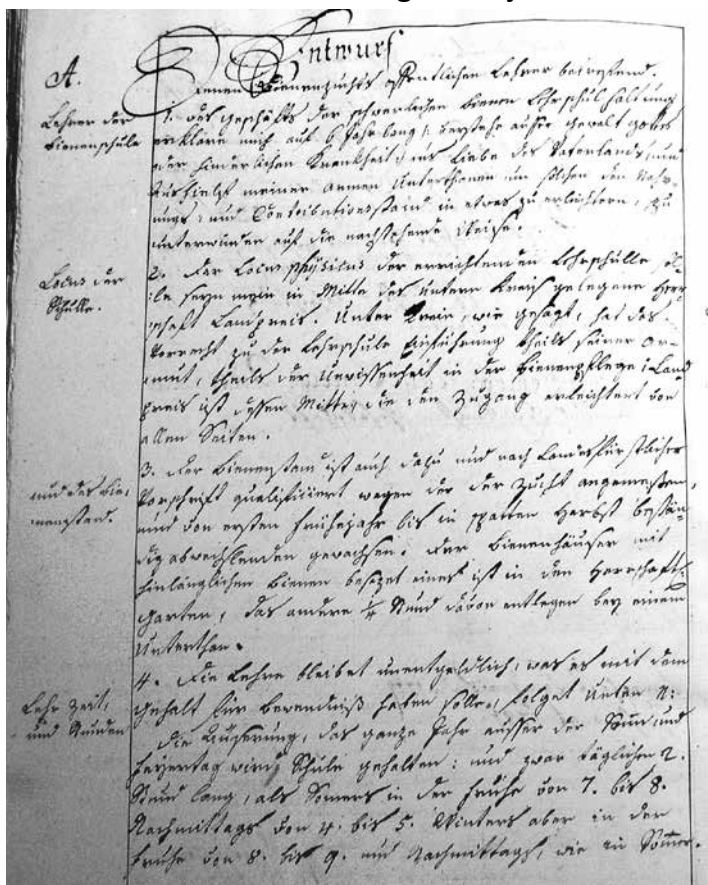 A.
Entwurf
einen Bienenzuchts öffentlichen Lehrer betreffend.
Lehrer der
Bienenschule
1. das geschäft der Lehrschul haltung
erkläre mich auf 6 Jahr lang /: verstehe ausser gewalt gottes
oder hinderlichen Krankheit :/ aus liebe des Vaterlands, und
Aushielf meiner armen Unterthanen um solchen den Nah-
rungs- und Contributionsstand in etwas zu erleichtern, zu
unterwinden auf die nachstehende Weise.
Locus der
Schulle.
2. Der Locus physicus der errichtenden Lehrschulle sol-
le seyn mein in Mitte des untern Kreis gelegene Herr-
schaft Landpreis. Unter Krein, wie gesagt, hat das
Vorrecht zu der Lehrschule Einführung theils seiner Ar-
mut, theils der Unwissenheit in der Bienenpflege: Land
preis ist dessen Mitte, die den Zugang erleichtert von
allen Seiten.
und der Bie-
nenstand.
3. Der Bienenstand ist auch dazu und nach Landesfürstlicher
Vorschrift qualificiert wegen der der Zucht angemessenen,
und von ersten Frühejahr bis in spatten Herbst bestän-
dig abwechslenden gewächsen: der Bienenhäuser mit
hinlänglichen Bienen besezet eines ist in den Herrschaftl.
Garten, das andere 1/4 Stund davon entlegen bey einem
Unterthan.
Lehr Zeit,
und Stunden
4. Die Lehre bleibet unentgeldlich, was es mit dem
Gehalt für bewendniß haben solle, folget unten
die Äußerung, das ganze Jahr ausser der Sonn- und
Feyertag wird Schule gehalten: und zwar täglichen 2.
Stund lang, als Sommers in der frühe von 7. bis 8.
Nachmittags von 4. bis 5. Winters aber in der
frühe von 8. bis 9. und Nachmittags, wie im Sommer.